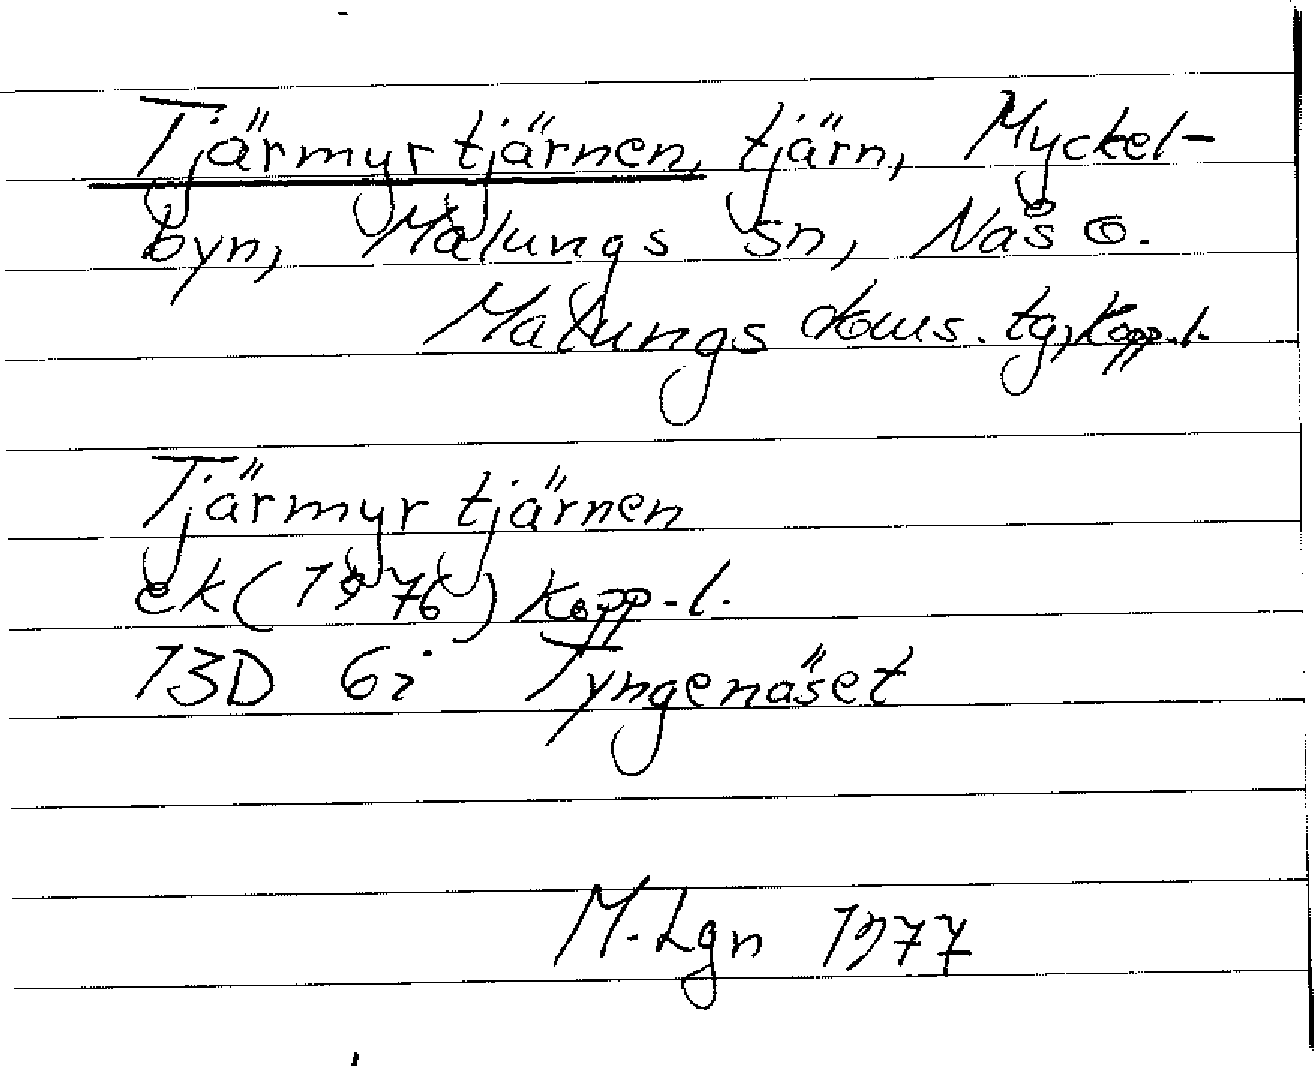 Tjärmyrtjärnen, tjärn, Myckel-
byn, Malungs sn, Näs o.
Malungs doms. tg, Kopp.l.
Tjärmyrtjärnen
ek (1976) Kopp.l.
13D 6i Tyngenäset
M. Lgn 1977